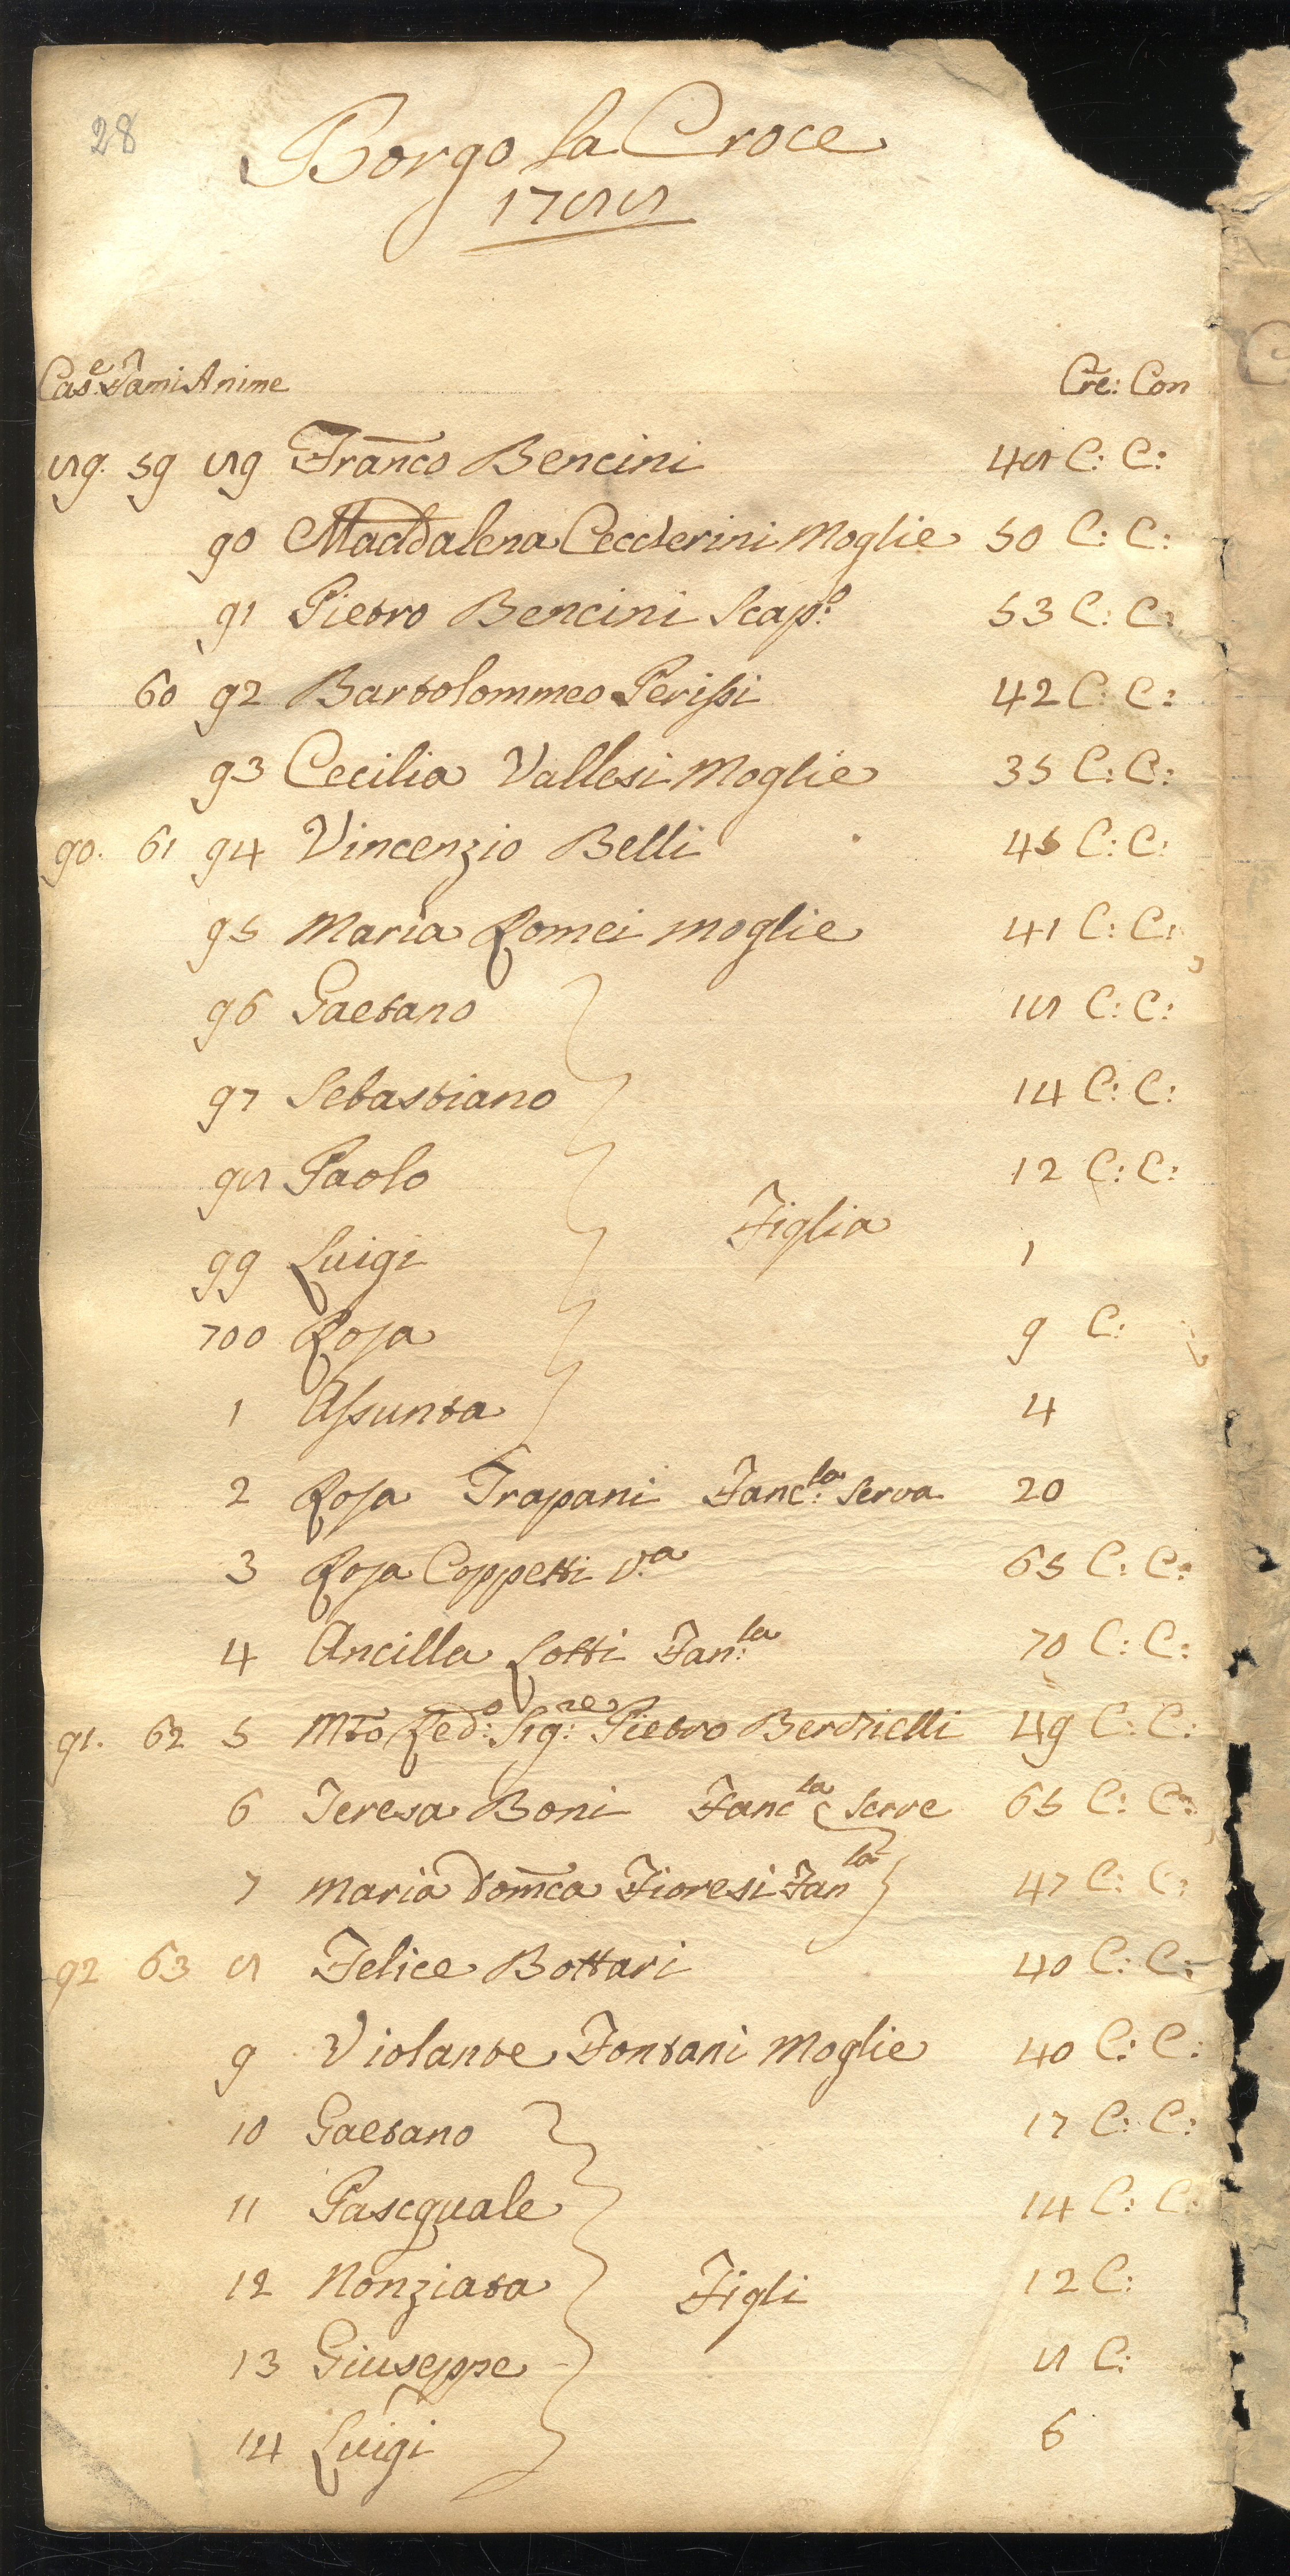 28
Borgo la Croce
1788
Case: Fami Anime Cre: Con
89. 59 89 Franco Bencini 48 C: C:
90 Maddalena Ceccherini Moglie 50 C: C:
91 Pietro Bencini Scap:o 53 C: C:
60 92 Bartolommeo Perissi 42 C: C:
93 Cecilia Vallesi Moglie 35 C: C:
90. 61 94 Vincenzio Belli 45 C: C:
95 Maria Romei moglie 41 C: C:
96 Gaetano 18 C: C:
97 Sebastiano 14 C: C:
98 Paolo 12 C: C:
Figlia
99 Luigi 1
700 Rosa 9 C:
1 Assunta 4
2 Rosa Trapani Fanc:la Serva 20
3 Rosa Coppetti V.a 65 C: C:
4 Ancilla Lotti Fan:la 70 C: C:
91. 62 5 Mto Red:o Sig:re Pietro Berzielli 49 C: C:
6 Teresa Boni Fancla Serve 65 C: C:
7 Maria Domca Fioresi Fanla 47 C: C:
92 63 8 Felice Bottari 40 C: C:
9 Violante Fontani Moglie 40 C: C:
10 Gaetano 17 C: C:
11 Pascquale 14 C: C:
12 Nonziata Figli 12 C:
13 Giuseppe 8 C:
14 Luigi 6